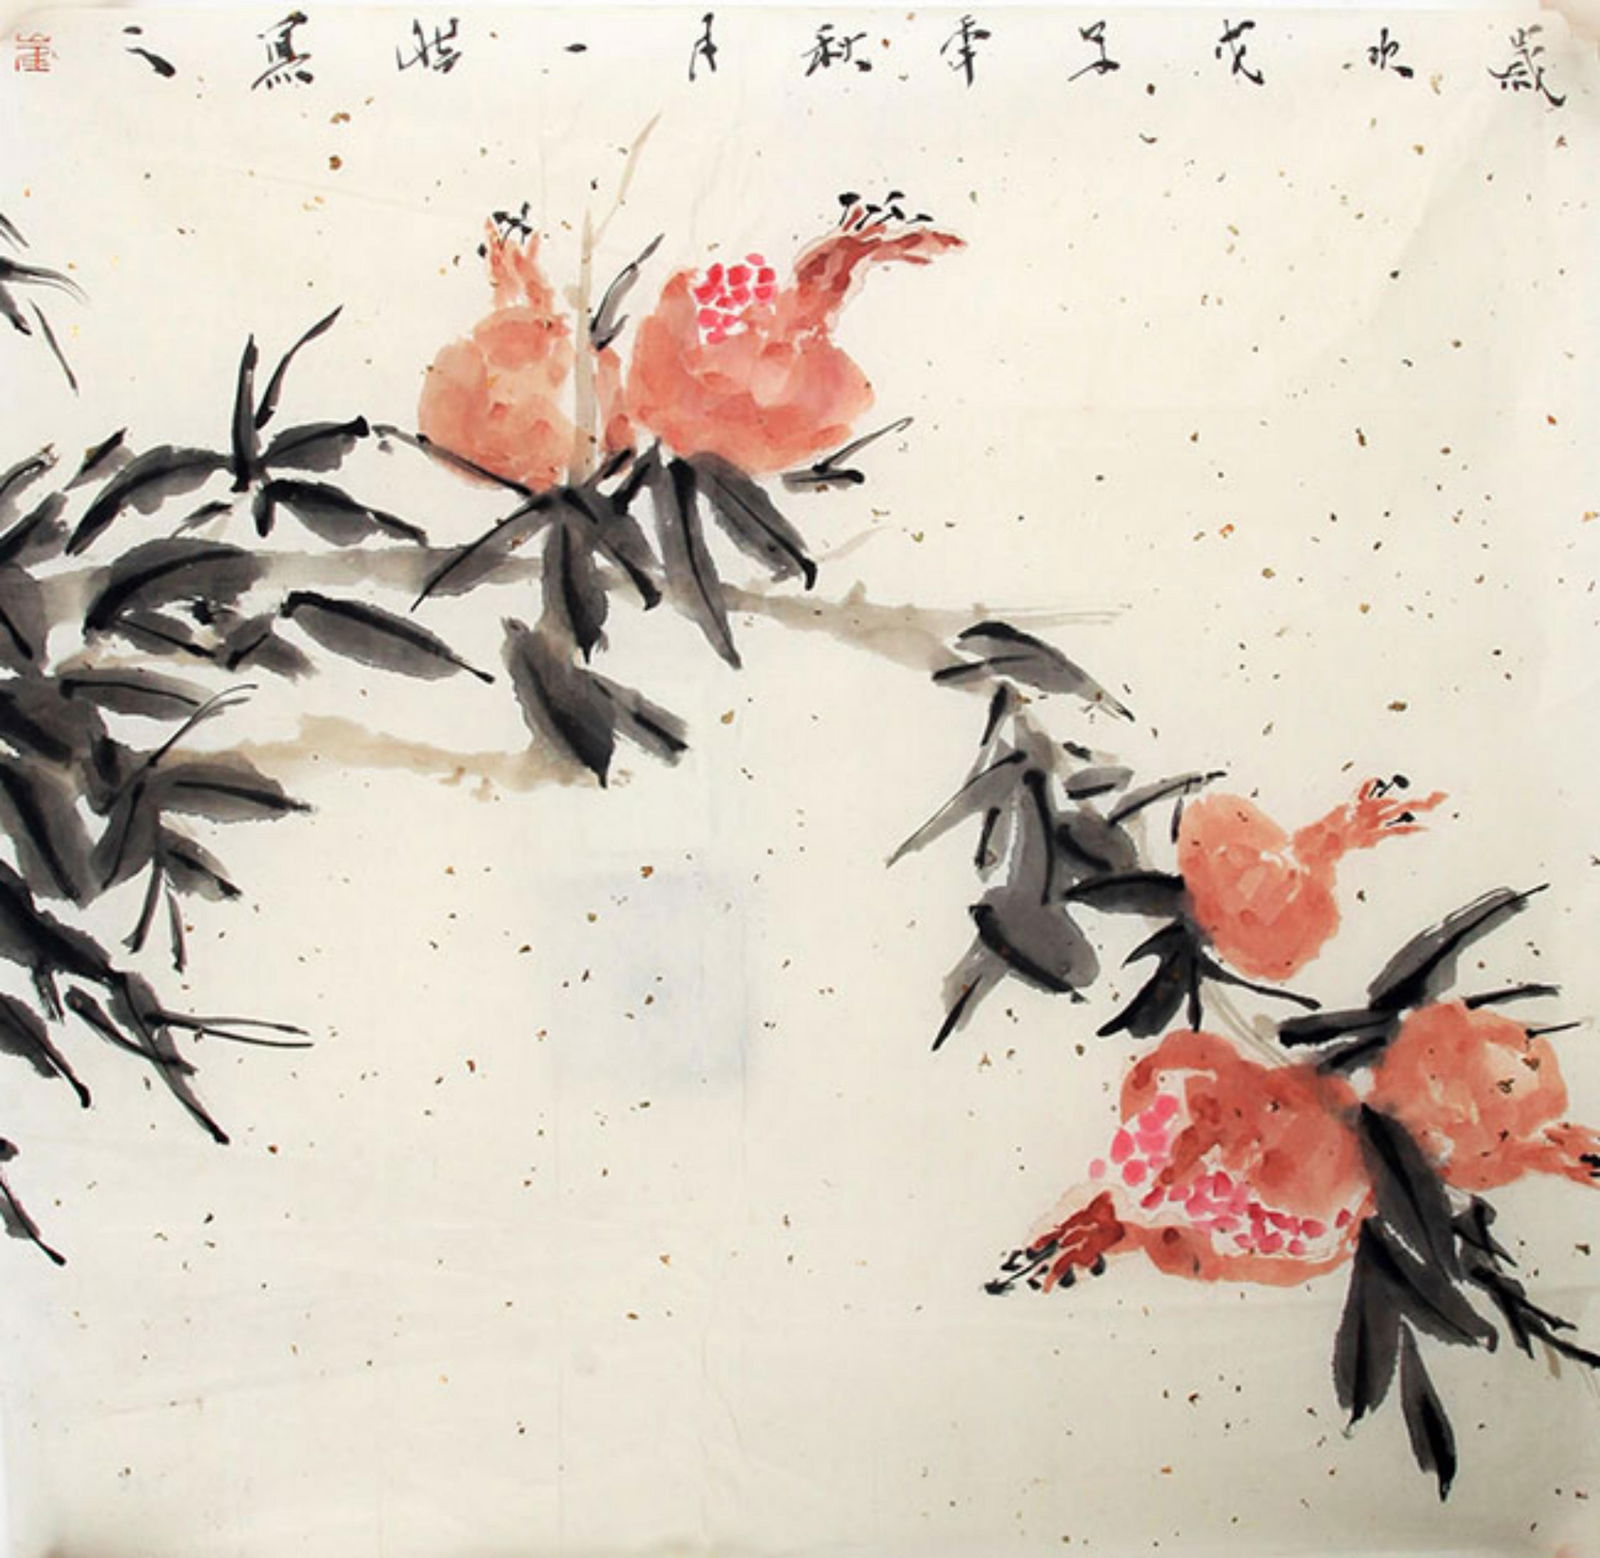 歲次戊子年秋月一皓寫之
崔